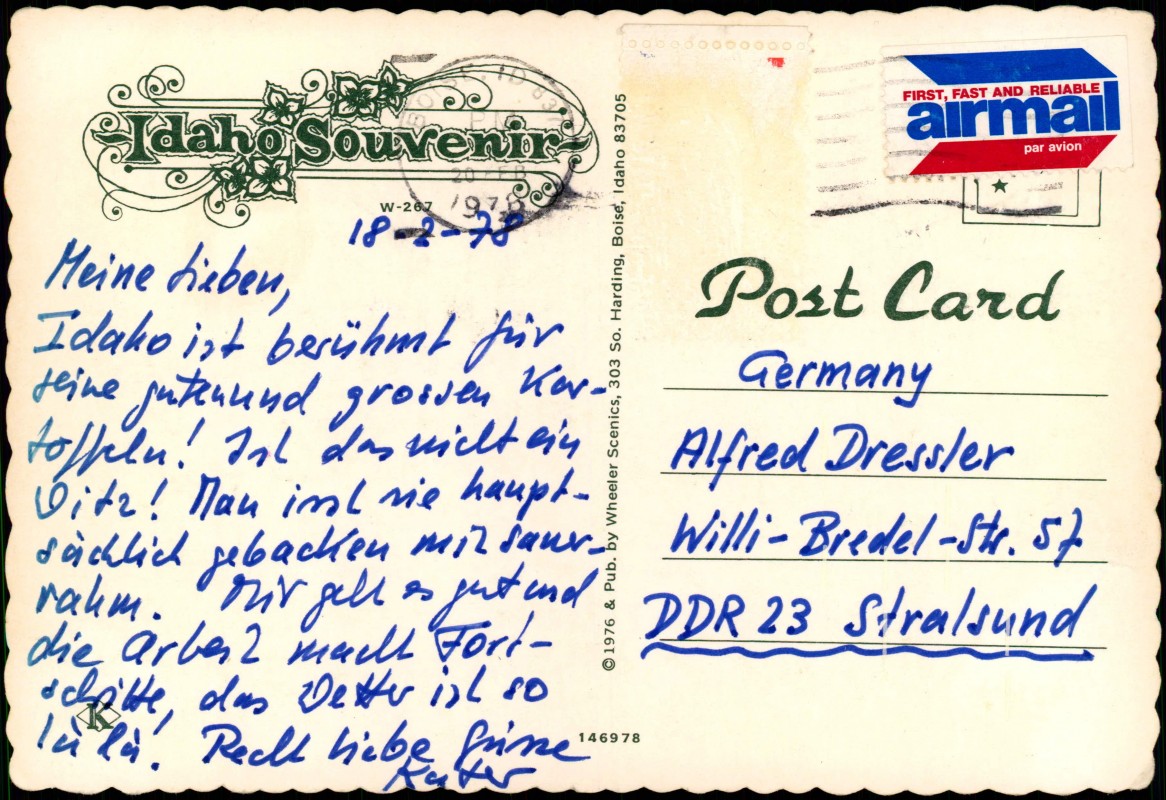 Idaho Souvenir
W-267
BOISE, ID 837
PM
20 FEB
1978
18-2-78
Meine Lieben,
Idaho ist berühmt für
seine guten und grossen Kar-
toffeln! Ist das nicht ein
Witz! Man isst sie haupt-
sächlich gebacken mit sauer-
rahm. Mir geht es gut und
die Arbeit macht Fort-
schitte, das Wetter ist so
la la. Recht liebe Grüsse
Kater
K
© 1976 & Pub. by Wheeler Scenics, 303 So. Harding, Boise, Idaho 83705
146978
FIRST, FAST AND RELIABLE
airmail
par avion
Post Card
Germany
Alfred Dressler
Willi-Bredel-Str. 57
DDR 23 Stralsund